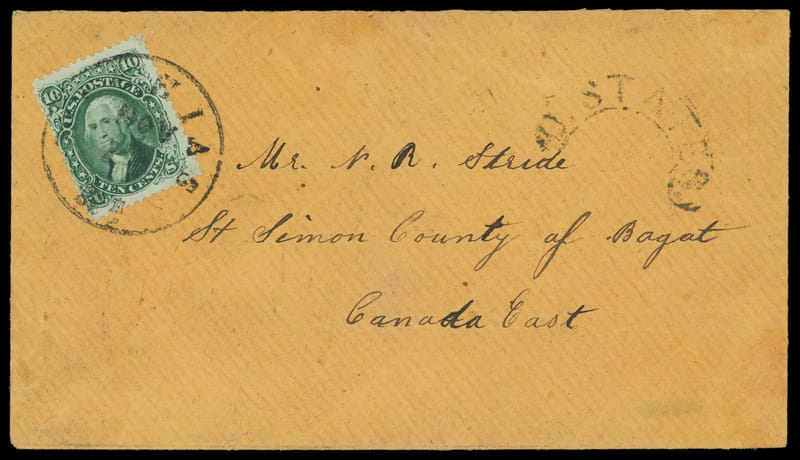 10 10
U.S. POSTAGE
TEN CENTS
NOV
U. STATES
Mr. N. R. Stride
St Simon County of Bagat
Canada East